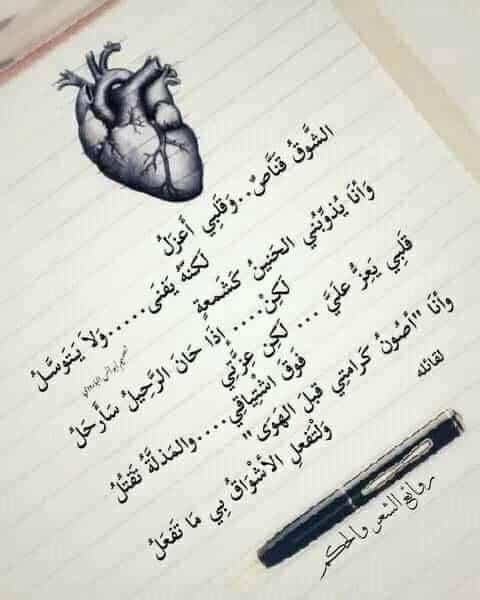 الشَّوْقُ قَنَّاصٌ..وَقَلبِي أَعزَلُ
لَكنَّهُ يَفنَى.....وَلَا يَتَوَسَّلُ
وَأنَا يُذَوِّبُنِي الحَنينُ كَشَمعةٍ
لَكِنْ.... إِذَا حَانَ الرَّحِيلُ سَأَرحَلُ
قَلبِي يَعِزُّ عَلَيَّ ... لَكِن عِزَّتِي
فَوقَ اشْتِيَاقِي....والمَذلَّةُ تَقتُلُ
وأنَا "أصُونُ كَرامَتِي قَبلَ الهَوَى"
وَلْتَفعَلِ الأَشْوَاقُ بِي مَا تَفعَلُ
لقائله
روائع الشعر والحكم